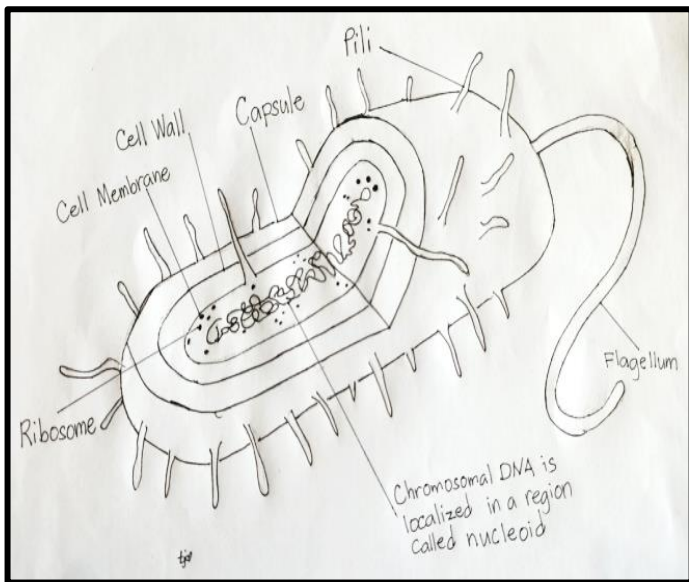 Pili
Capsule
Cell Wall
Cell Membrane
Ribosome
Flagellum
Chromosomal DNA is
localized in a region
called nucleoid